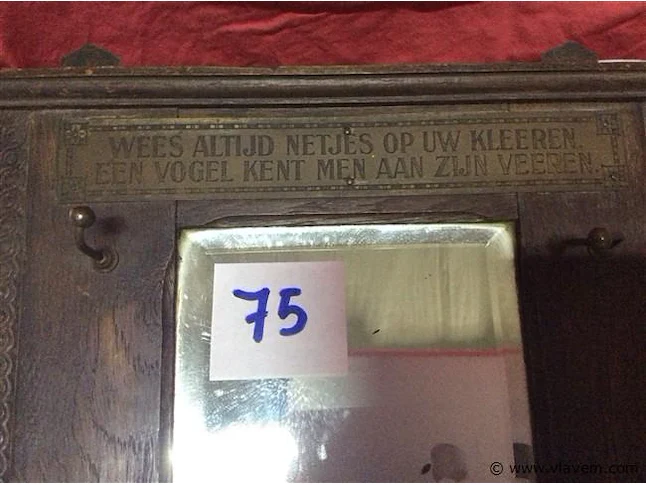 WEES ALTIJD NETJES OP UW KLEEREN.
EEN VOGEL KENT MEN AAN ZIJN VEEREN.
75
© www.vlavem.com